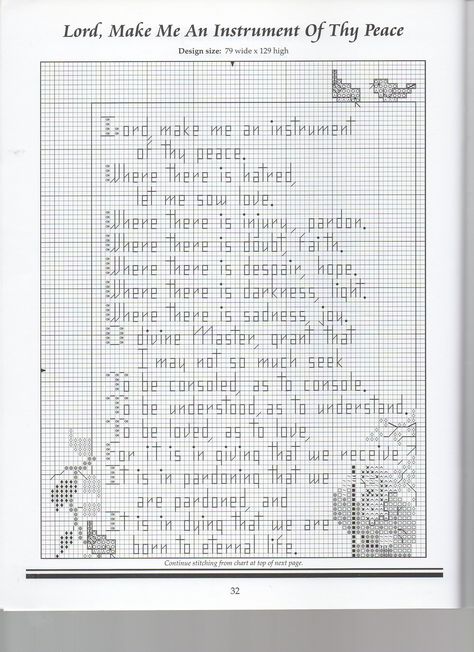 Lord, Make Me An Instrument Of Thy Peace
Design size: 79 wide x 129 high
Lord, make me an instrument
of thy peace.
Where there is hatred,
let me sow love.
Where there is injury, pardon.
Where there is doubt, faith.
Where there is despair, hope.
Where there is darkness, light.
Where there is sadness, joy.
O divine Master, grant that
I may not so much seek
To be consoled, as to console.
To be understood, as to understand.
To be loved, as to love,
For it is in giving that we receive,
It is in pardoning that we
are pardoned, and
It is in dying that we are
born to eternal life.
Continue stitching from chart at top of next page.
32